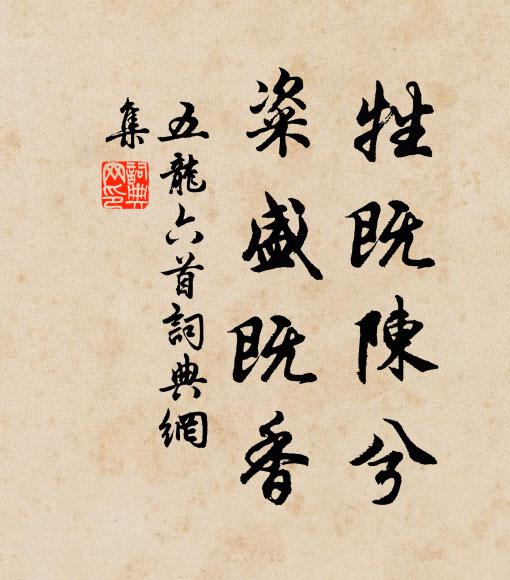 牲既陳兮
粢盛既香
五龍六首詞典網
集
詞典
网印